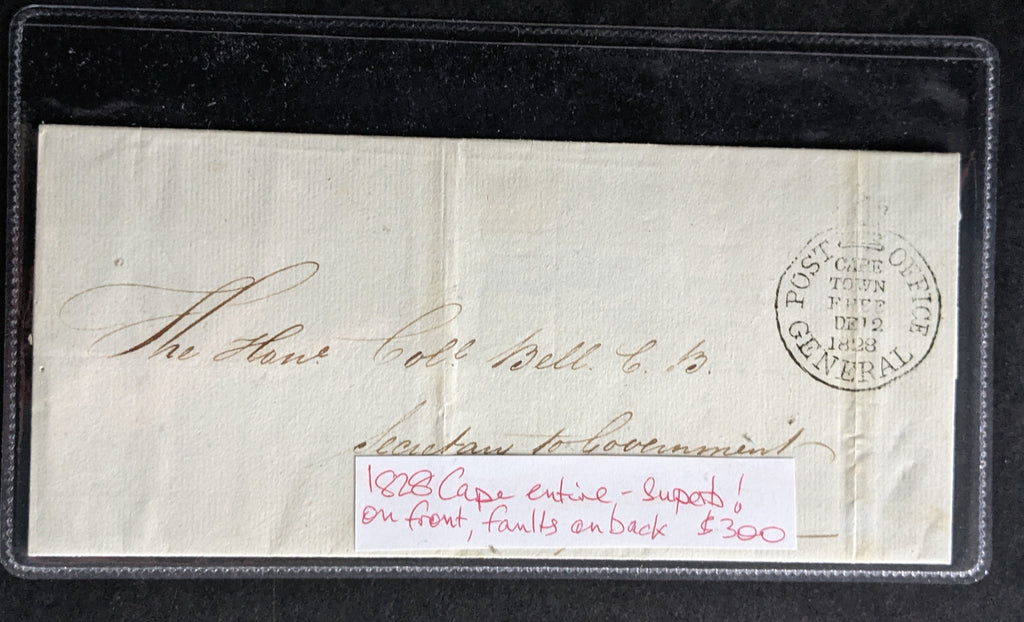 POST OFFICE
CAPE
TOWN
FREE
DE12
1828
GENERAL
The Hone Coll Bell. C. B.
Secretary to Government
1828 Cape entire - Superb!
on front, faults on back $300